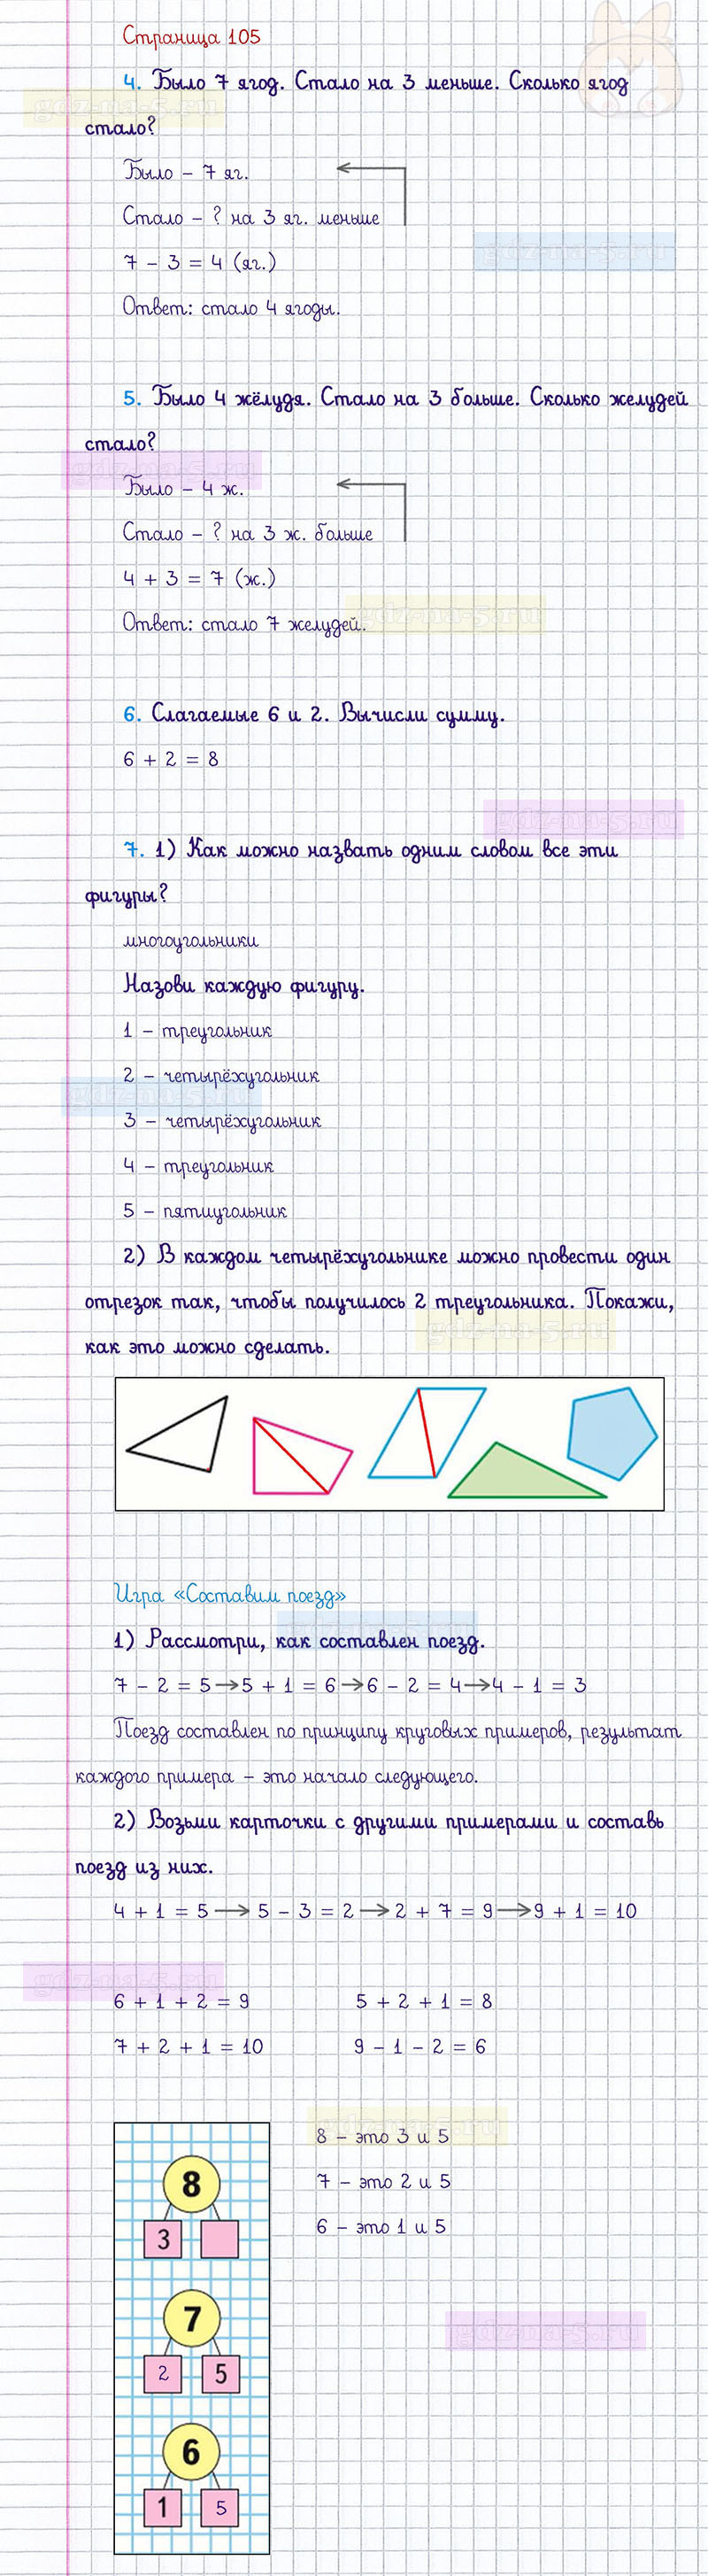 Страница 105
4. Было 7 ягод. Стало на 3 меньше. Сколько ягод
стало?
Было – 7 яг.
Стало – ? на 3 яг. меньше
7 – 3 = 4 (яг.)
Ответ: стало 4 ягоды.
5. Было 4 жёлудя. Стало на 3 больше. Сколько желудей
стало?
Было – 4 ж.
Стало – ? на 3 ж. больше
4 + 3 = 7 (ж.)
Ответ: стало 7 желудей.
6. Слагаемые 6 и 2. Вычисли сумму.
6 + 2 = 8
7. 1) Как можно назвать одним словом все эти
фигуры?
многоугольники
Назови каждую фигуру.
1 – треугольник
2 – четырёхугольник
3 – четырёхугольник
4 – треугольник
5 – пятиугольник
2) В каждом четырёхугольнике можно провести один
отрезок так, чтобы получилось 2 треугольника. Покажи,
как это можно сделать.
Игра «Составим поезд»
1) Рассмотри, как составлен поезд.
7 – 2 = 5→5 + 1 = 6→6 – 2 = 4→4 – 1 = 3
Поезд составлен по принципу круговых примеров, результат
каждого примера – это начало следующего.
2) Возьми карточки с другими примерами и составь
поезд из них.
4 + 1 = 5→5 – 3 = 2→2 + 7 = 9→9 + 1 = 10
6 + 1 + 2 = 9 5 + 2 + 1 = 8
7 + 2 + 1 = 10 9 – 1 – 2 = 6
8
3
7
2 5
6
1 5
8 – это 3 и 5
7 – это 2 и 5
6 – это 1 и 5
gdz-na-5.ru
gdz-na-5.ru
gdz-na-5.ru
gdz-na-5.ru
gdz-na-5.ru
gdz-na-5.ru
gdz-na-5.ru
gdz-na-5.ru
gdz-na-5.ru